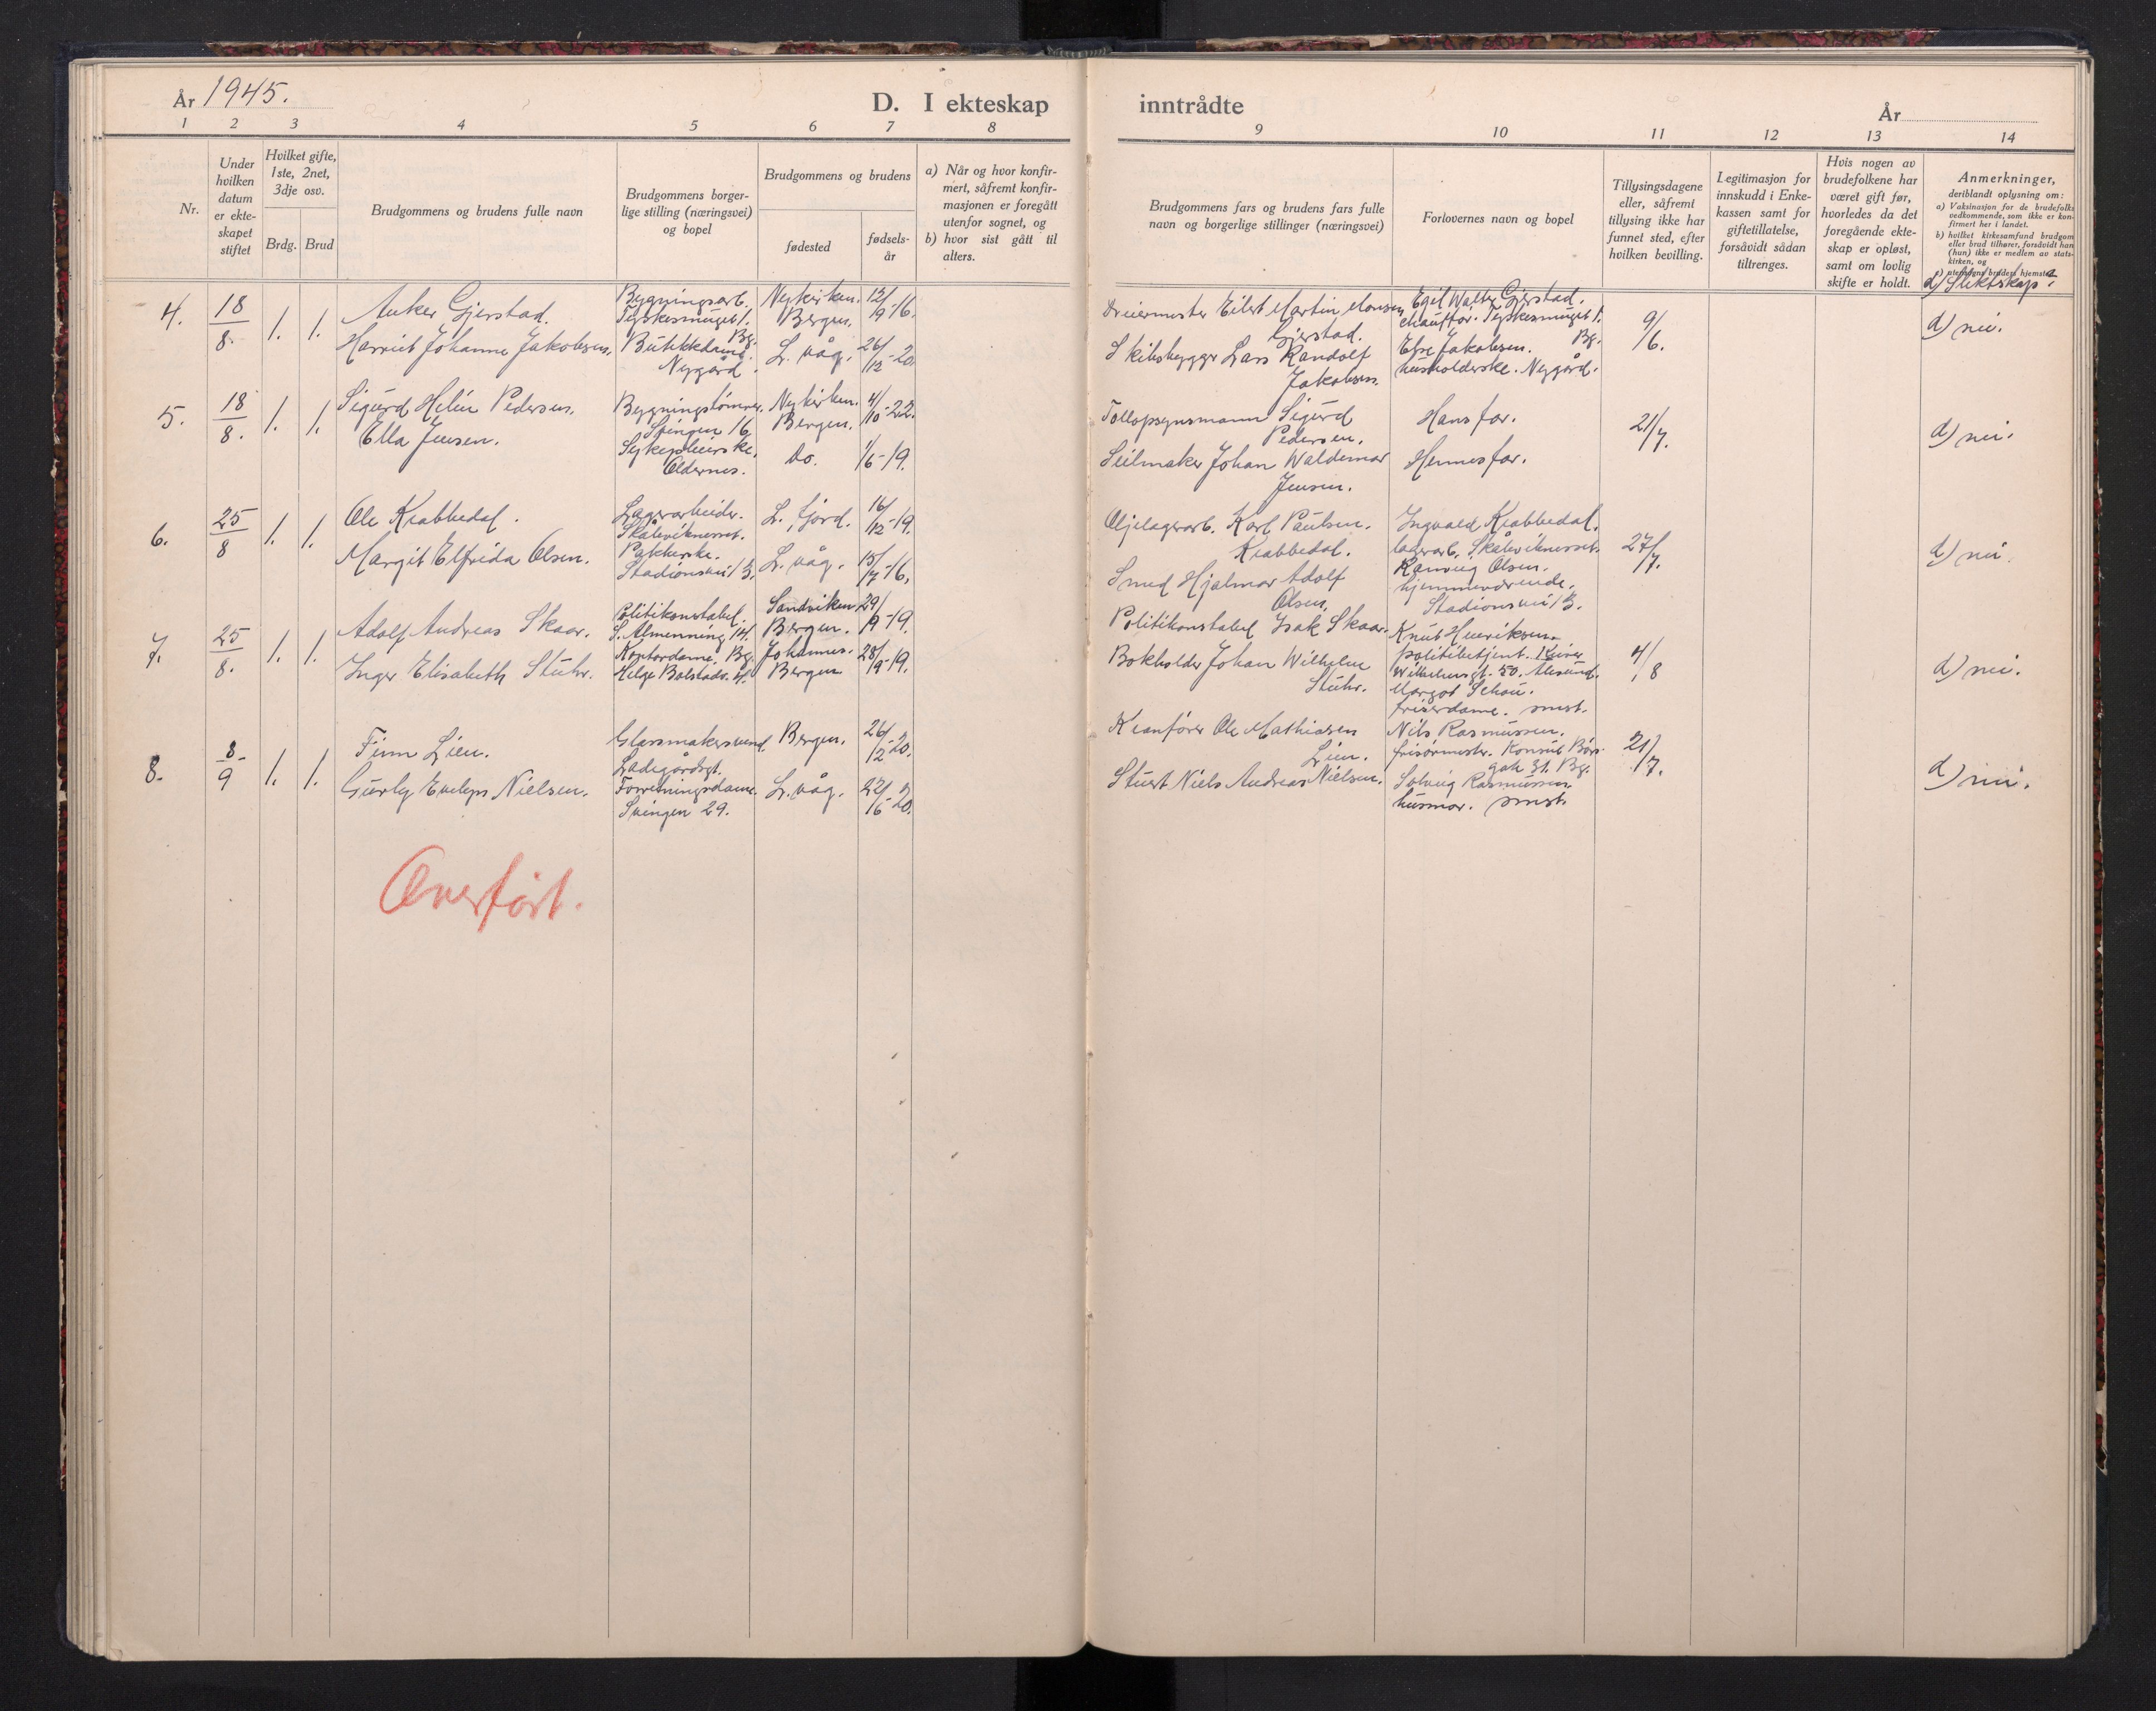 År 1945.
D. I ekteskap inntrådte
År
1 2 3 4 5 6 7 8 9 10 11 12 13 14
Nr.
Under
hvilken
datum
er ekte-
skapet
stiftet
Hvilket gifte,
1ste, 2net,
3dje osv.
Brdg. Brud
Brudgommens og brudens fulle navn
Brudgommens borger-
lige stilling (næringsvei)
og bopel
Brudgommens og brudens
fødested
fødsels-
år
a) Når og hvor konfir-
mert, såfremt konfir-
masjonen er foregått
utenfor sognet, og
b) hvor sist gått til
alters.
Brudgommens fars og brudens fars fulle
navn og borgerlige stillinger (næringsvei)
Forlovernes navn og bopel
Tillysingsdagene
eller, såfremt
tillysing ikke har
funnet sted, efter
hvilken bevilling.
Legitimasjon for
innskudd i Enke-
kassen samt for
giftetillatelse,
forsåvidt sådan
tiltrenges.
Hvis nogen av
brudefolkene har
været gift før,
hvorledes da det
foregående ekte-
skap er opløst,
samt om lovlig
skifte er holdt.
Anmerkninger,
deriblandt oplysning om:
a) Vaksinasjon for de brudefolks
vedkommende, som ikke er kon-
firmert her i landet.
b) hvilket kirkesamfund brudgom
eller brud tilhører, forsåvidt han
(hun) ikke er medlem av stats-
kirken, og
d) Slektskap.
4. 18/8. 1. 1.
Anker Gjerstad.
Harriet Johanne Jakobsen.
Bygningsarb.
Tyskesmuget 1.
Bg.
Butikkdame.
Nygård.
Nykirken.
Bergen.
L. våg.
12/9-16.
26/12-20.
Dreiermester Eilert Martin Monsen
Gjerstad.
Skibsbygger Lars Randolf
Jakobsen.
Egil Walter Gjerstad.
chauffør. Tyskesmuget 1.
Bg.
Else Jakobsen.
husholderske. Nygård.
9/6.
d) nei.
5. 18/8. 1. 1.
Sigurd Helén Pedersen.
Ella Jensen.
Bygningstømrer.
Svingen 16.
Sykepleierske.
Oldernes.
Nykirken.
Bergen.
Do.
4/10-22.
1/6-19.
Tollopsynsmann Sigurd
Pedersen.
Seilmaker Johan Waldemar
Jensen.
Hans far.
Hennes far.
21/7.
d) nei.
6. 25/8 1. 1.
Ole Krabbedal.
Margit Elfrida Olsen.
Lagerarbeider.
Skåleviknesset.
Pakkerske.
Stadionsvei 13.
L. fjord.
L. våg.
16/12-19.
15/7-16.
Oljelagerarb. Karl Paulsen.
Krabbedal.
Smed Hjalmar Adolf
Olsen.
Ingvald Krabbedal.
lagerarb. Skåleviknesset.
Ranveig Olsen.
hjemmeværende.
Stadionsvei 13.
27/7.
d) nei.
7. 25/8. 1. 1.
Adolf Andreas Skaar.
Inger Elisabeth Stuhr.
Politikonstabel.
S. Almenning 14.
Kontordame. Bg.
Helge Bolstadv. 4.
Sandviken
Bergen.
Johannes.
Bergen
29/9-19.
28/9-19.
Politikonstabel Isak Skaar.
Bokholder Johan Wilhelm
Stuhr.
Knut Henriksen.
politibetjent. Keiser
Wilhelmsgt. 50. Ålesund.
Margot Schou.
friserdame. smst.
4/8
d) nei.
8. 8/9 1. 1.
Finn Lien.
Gurly Evelyn Nielsen.
Glassmakersvend.
Ladegårdsgt.
Forretningsdame.
Svingen 29.
Bergen.
L. våg.
26/2-20.
22/6-20.
Kranfører Ole Mathiasen
Lien.
Stuert Niels Andreas Nielsen.
Nils Rasmussen.
frisørmester. Konsul Børs
gate 31. Bg.
Solveig Rasmussen
husmor. smst.
21/7.
d) nei.
Overført.